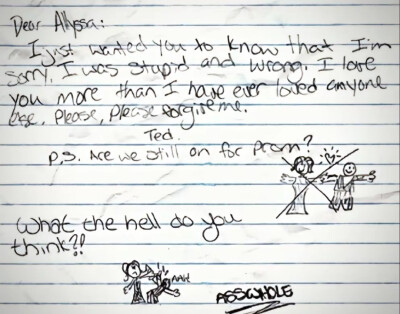 Dear Allyssa:
I just wanted you to know that I'm
sorry. I was stupid and wrong. I love
you more than I have ever loved anyone
else. Please, please, please forgive me.
Ted.
P.S. Are we still on for prom?
What the hell do you
think?!
ASSWHOLE